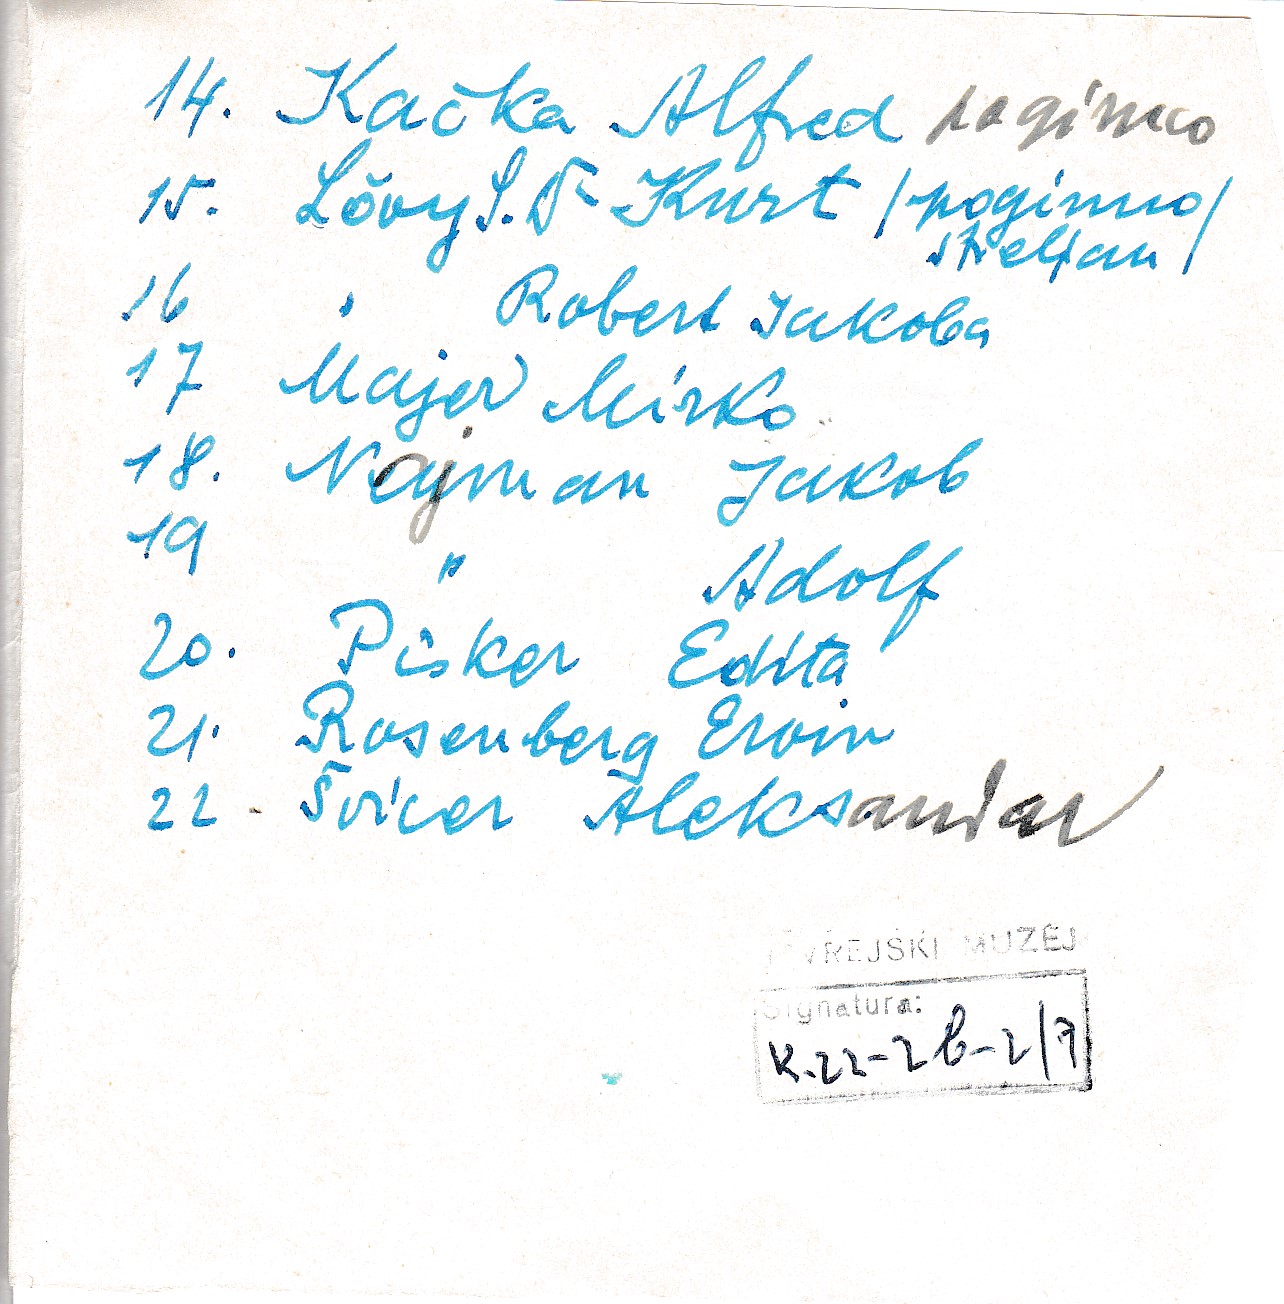 14. Kačka Alfred poginuo
15. Lövy S. Dr Kurt /poginuo/
streljan/
16 " Robert Jakoba
17 Majer Mirko
18. Najman Jakob
19 " Adolf
20. Pisker Edita
21. Rosenberg Ervin
22 Švicer Aleksandar
JEVREJSKI MUZEJ
Signatura:
K.22-2b-2/7